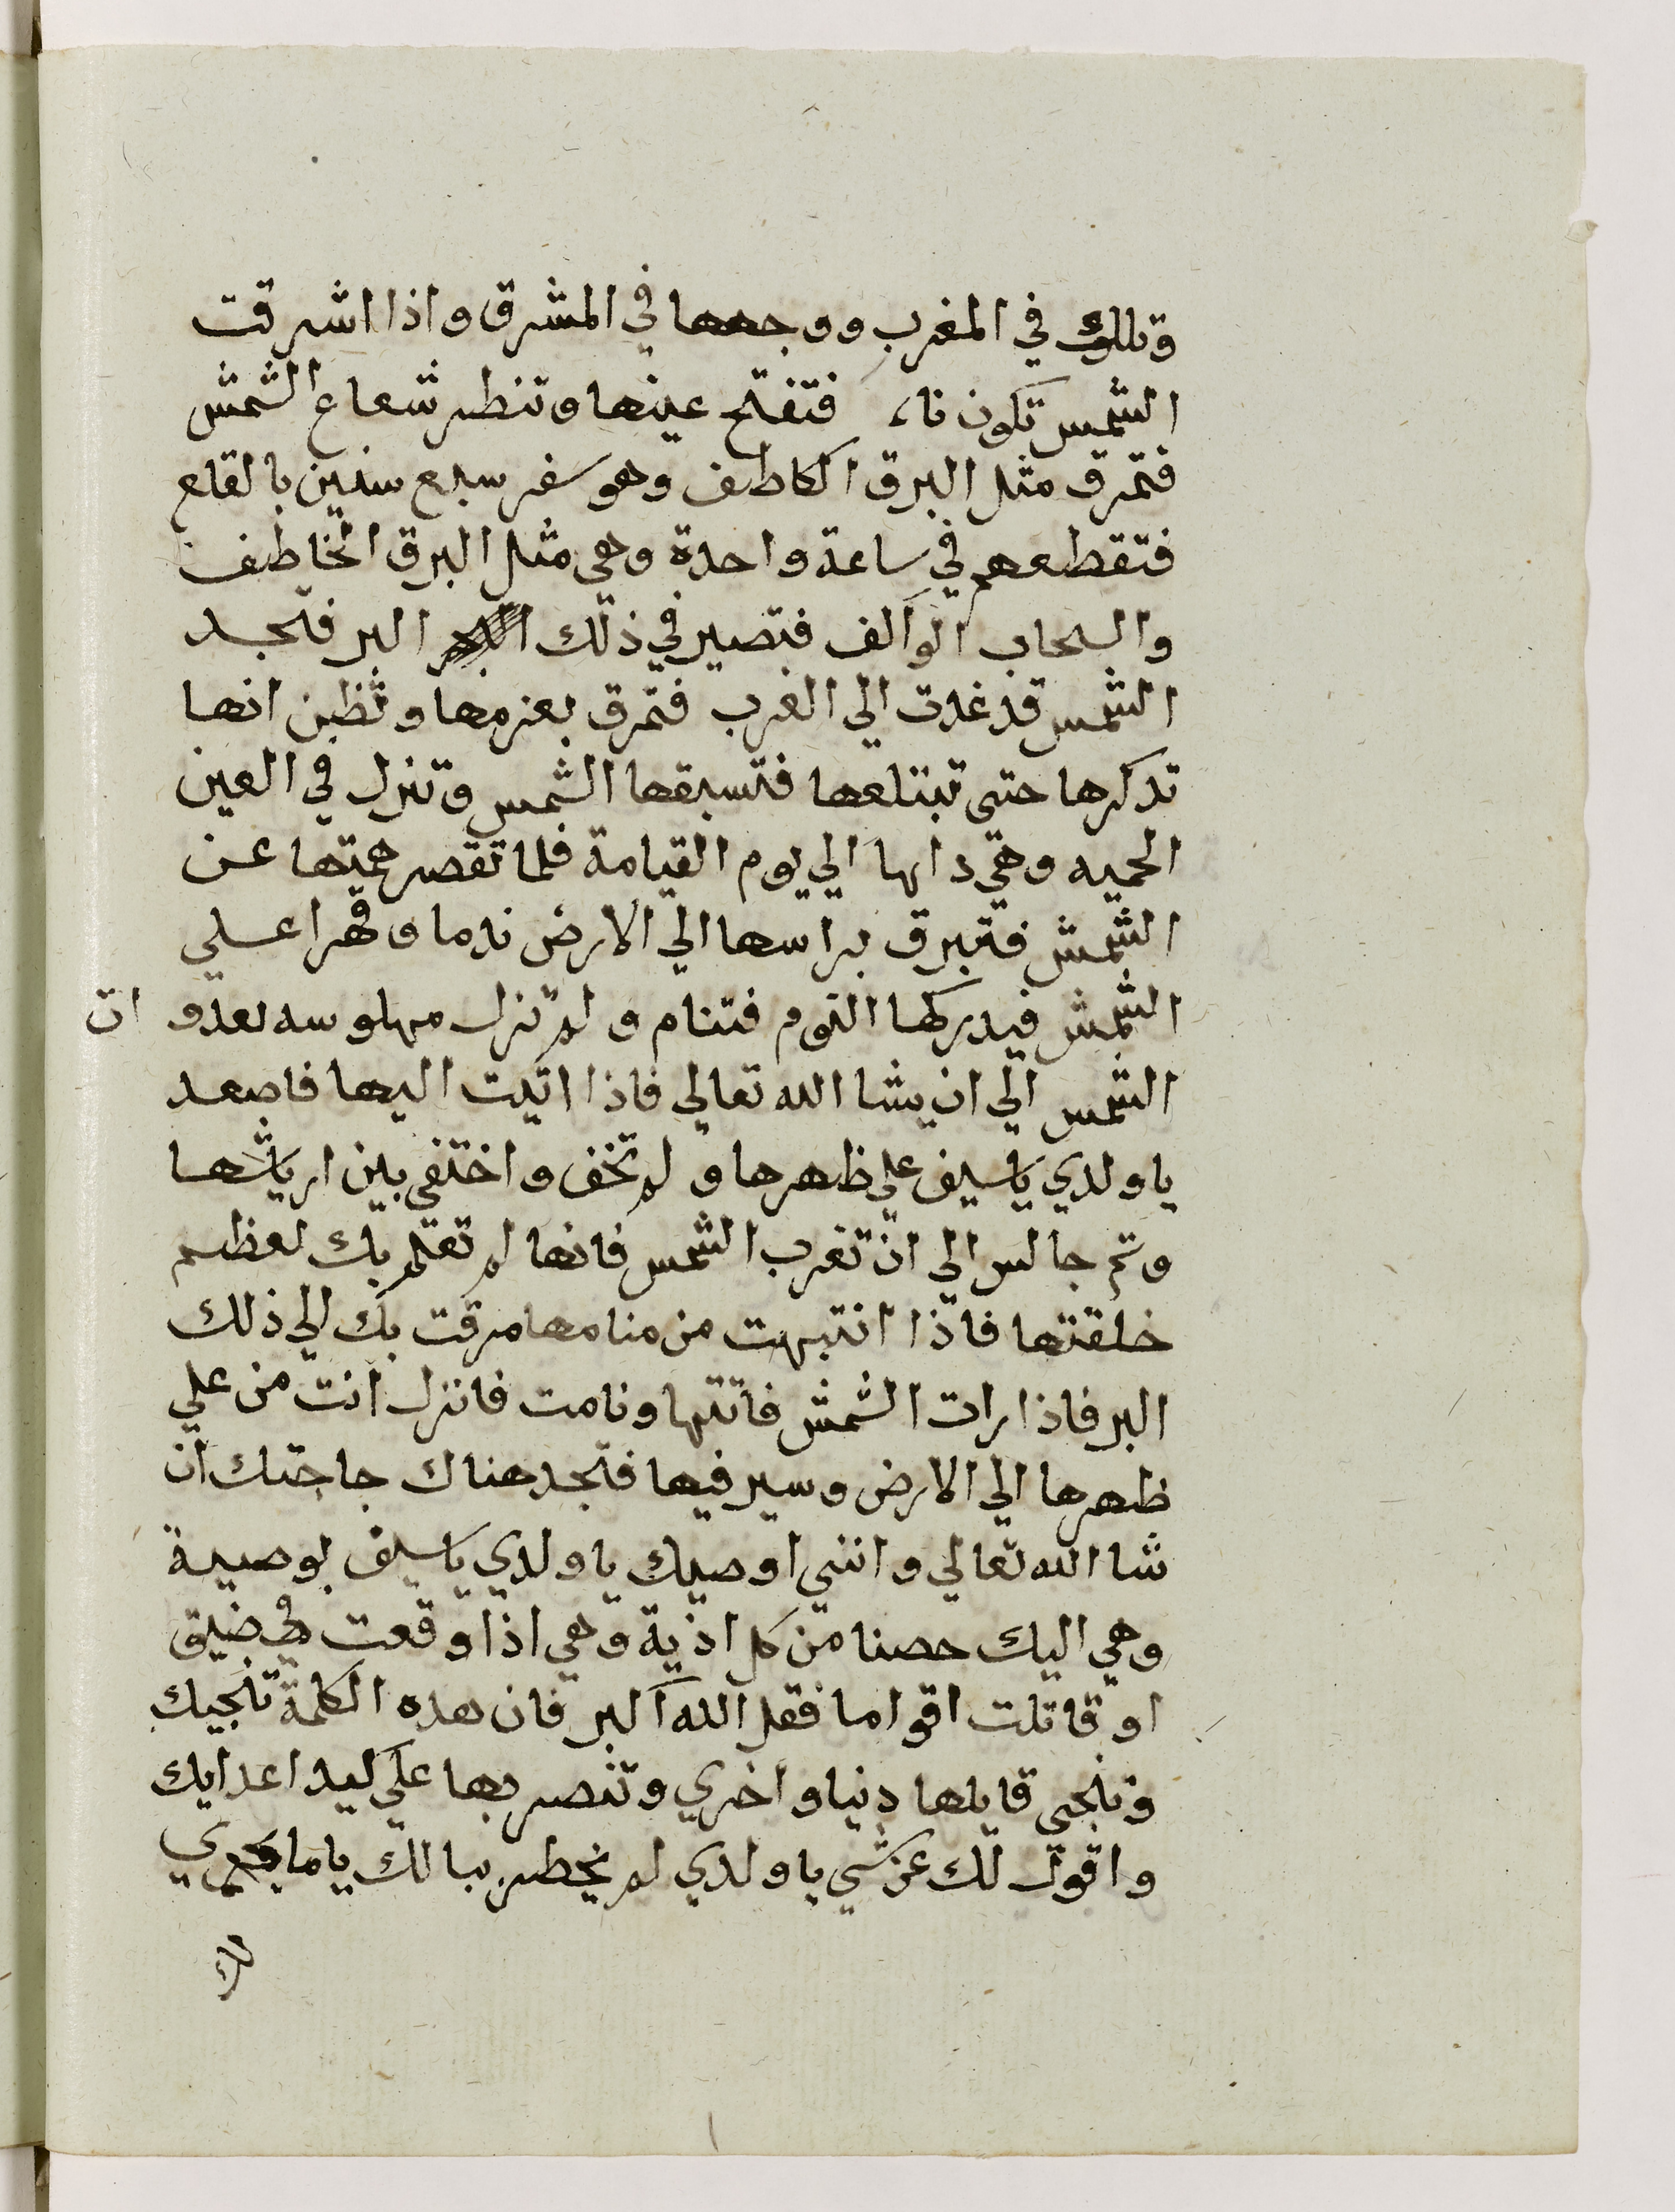 وتلك في المغرب ووجهها في المشرق واذا اشرقت
الشمس تكون نا، فتفتح عينها وتنظر شعاع الشمش
فتمرق مثل البرق الكاطف وهو سفر سبع سنين بالقلع
فتقطعهم في ساعة واحدة وهي مثل البرق الخاطف
والسحاب الوالف فتصير في ذلك البر فتجد
الشمس قد غدت الي الغرب فتمرق بعزمها وتظن انها
تدكرها حتى تبتلعها فتسبقها الشمس وتنزل في العين
الحميه وهي دابها الي يوم القيامة فلما تقصر همتها عن
الشمش فتبرق براسها الي الارض ندما وقهرا علي
الشمش فيدركها النوم فتنام ولم تزل مهلوسه لعدو ات
الشمس الي ان يشا الله تعالي فاذا اتيت اليها فاصعد
يا ولدي ياسيف علي ظهرها ولم تخف واختفي بين ارياشها
وتم جالس الي ان تغرب الشمس فانها لم تعلم بك لعظم
خلقتها فاذا انتبهت من منامها مرقت بك الي ذلك
البر فاذا رات الشمش فاتتها ونامت فانزل انت من علي
ظهرها الي الارض وسير فيها فتجد هناك حاجتك ان
شا الله تعالي وانني اوصيك يا ولدي ياسيف بوصية
وهي اليك حصنا من كل اذية وهي اذا وقعت في ضيق
او قاتلت اقواما فقل الله اكبر فان هده الكلمة تنجيك
وتنجي قايلها دنيا واخري وتنصر بها علي كيد اعدايك
واقول لك عن شي يا ولدي لم يخطر ببالك ياما يجري
لك